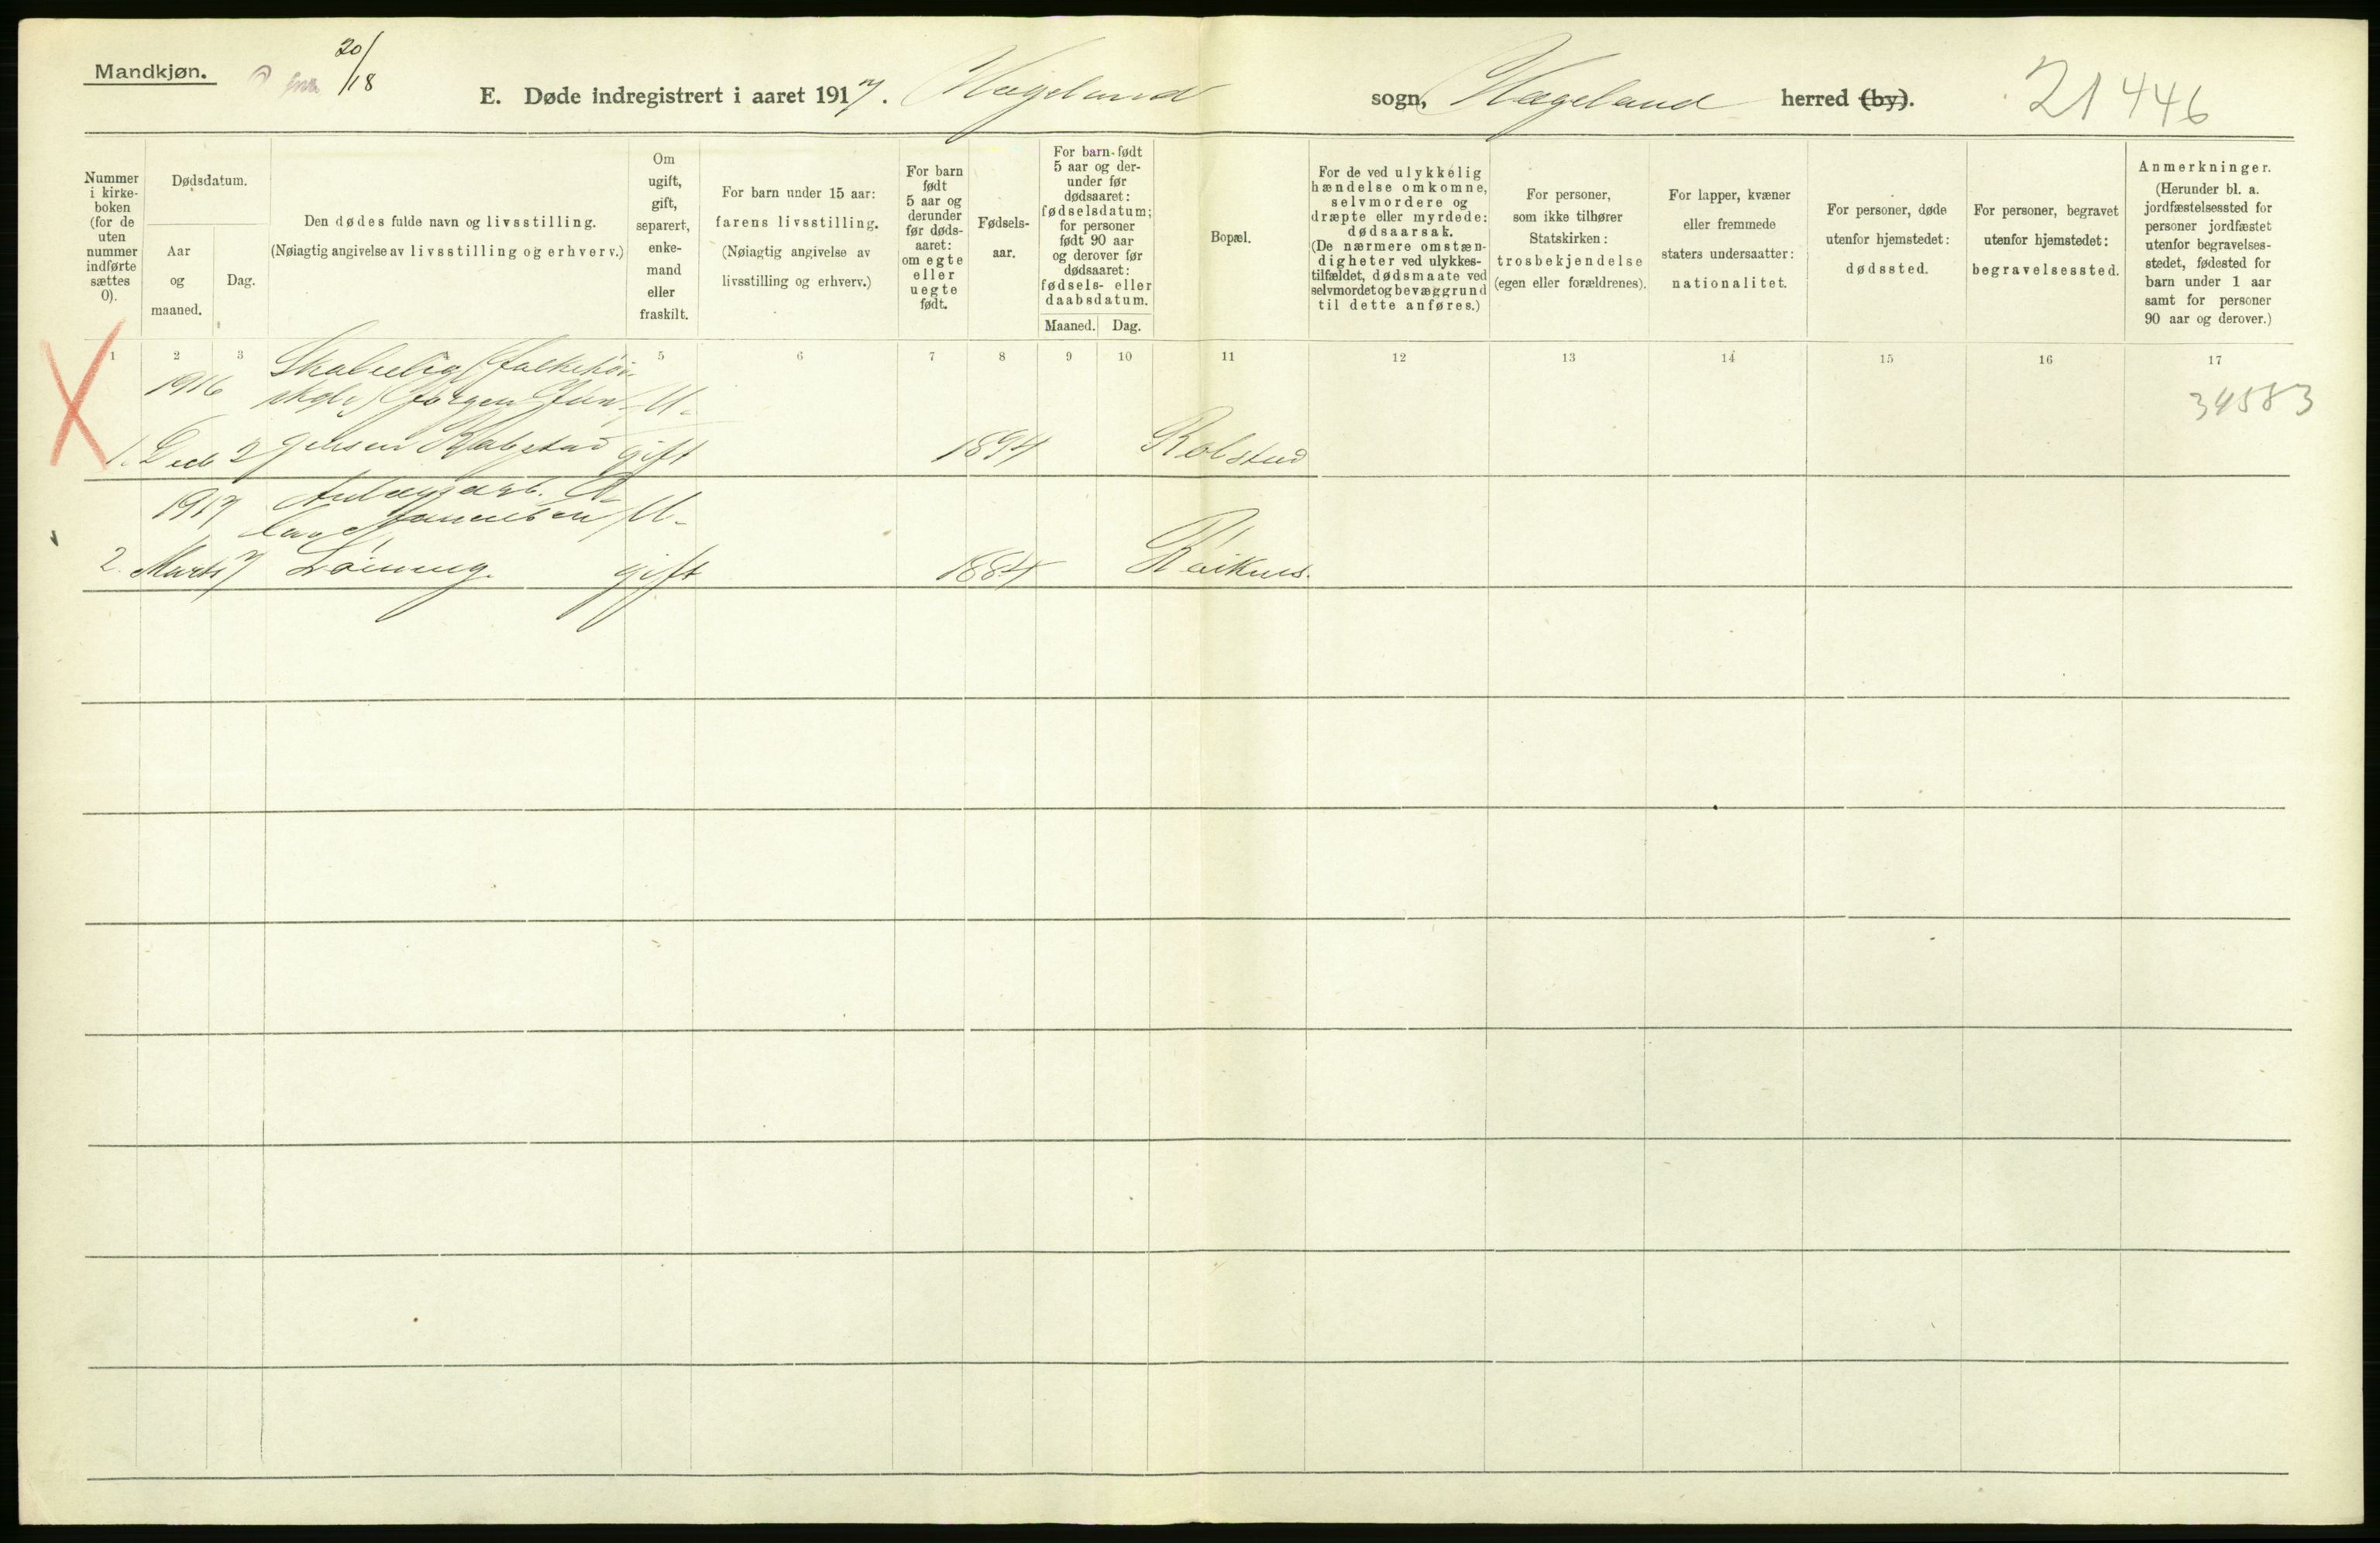 Mandkjøn.
20/18
E. Døde indregistrert i aaret 1917. Hægeland sogn, Hægeland herred (by).
21446
Nummer i kirke- boken (for de uten nummer indførte sættes 0).
Dødsdatum.
Aar og maaned.
Dag.
Den dødes fulde navn og livsstilling.
(Nøiagtig angivelse av livsstilling og erhverv.)
Om ugift, gift, separert, enke- mand eller fraskilt.
For barn under 15 aar:
farens livsstilling.
(Nøiagtig angivelse av
livsstilling og erhverv.)
For barn født 5 aar og derunder før døds- aaret: om egte eller uegte født.
Fødsels- aar.
For barn født 5 aar og der- under før dødsaaret: fødselsdatum; for personer født 90 aar og derover før dødsaaret: fødsels- eller daabsdatum.
Maaned. Dag.
Bopæl.
For de ved ulykkelig hændelse omkomne, selvmordere og dræpte eller myrdede: dødsaarsak. (De nærmere omstæn- digheter ved ulykkes- tilfældet, dødsmaate ved selvmordet og bevæggrund til dette anføres.)
For personer, som ikke tilhører Statskirken: trosbekjendelse (egen eller forældrenes).
For lapper, kvæner eller fremmede staters undersaatter: nationalitet.
For personer, døde utenfor hjemstedet: dødssted.
For personer, begravet utenfor hjemstedet: begravelsessted.
Anmerkninger.
(Herunder bl. a. jordfæstelsessted for personer jordfæstet utenfor begravelses- stedet, fødested for barn under 1 aar samt for personer 90 aar og derover.)
1 2 3 5 6 7 8 9 10 11 12 13 14 15 16 17
1916
U-
34583
1. Decb 2 gift 1894 Robstad
1917
U-
2. Marts 7 gift 1884